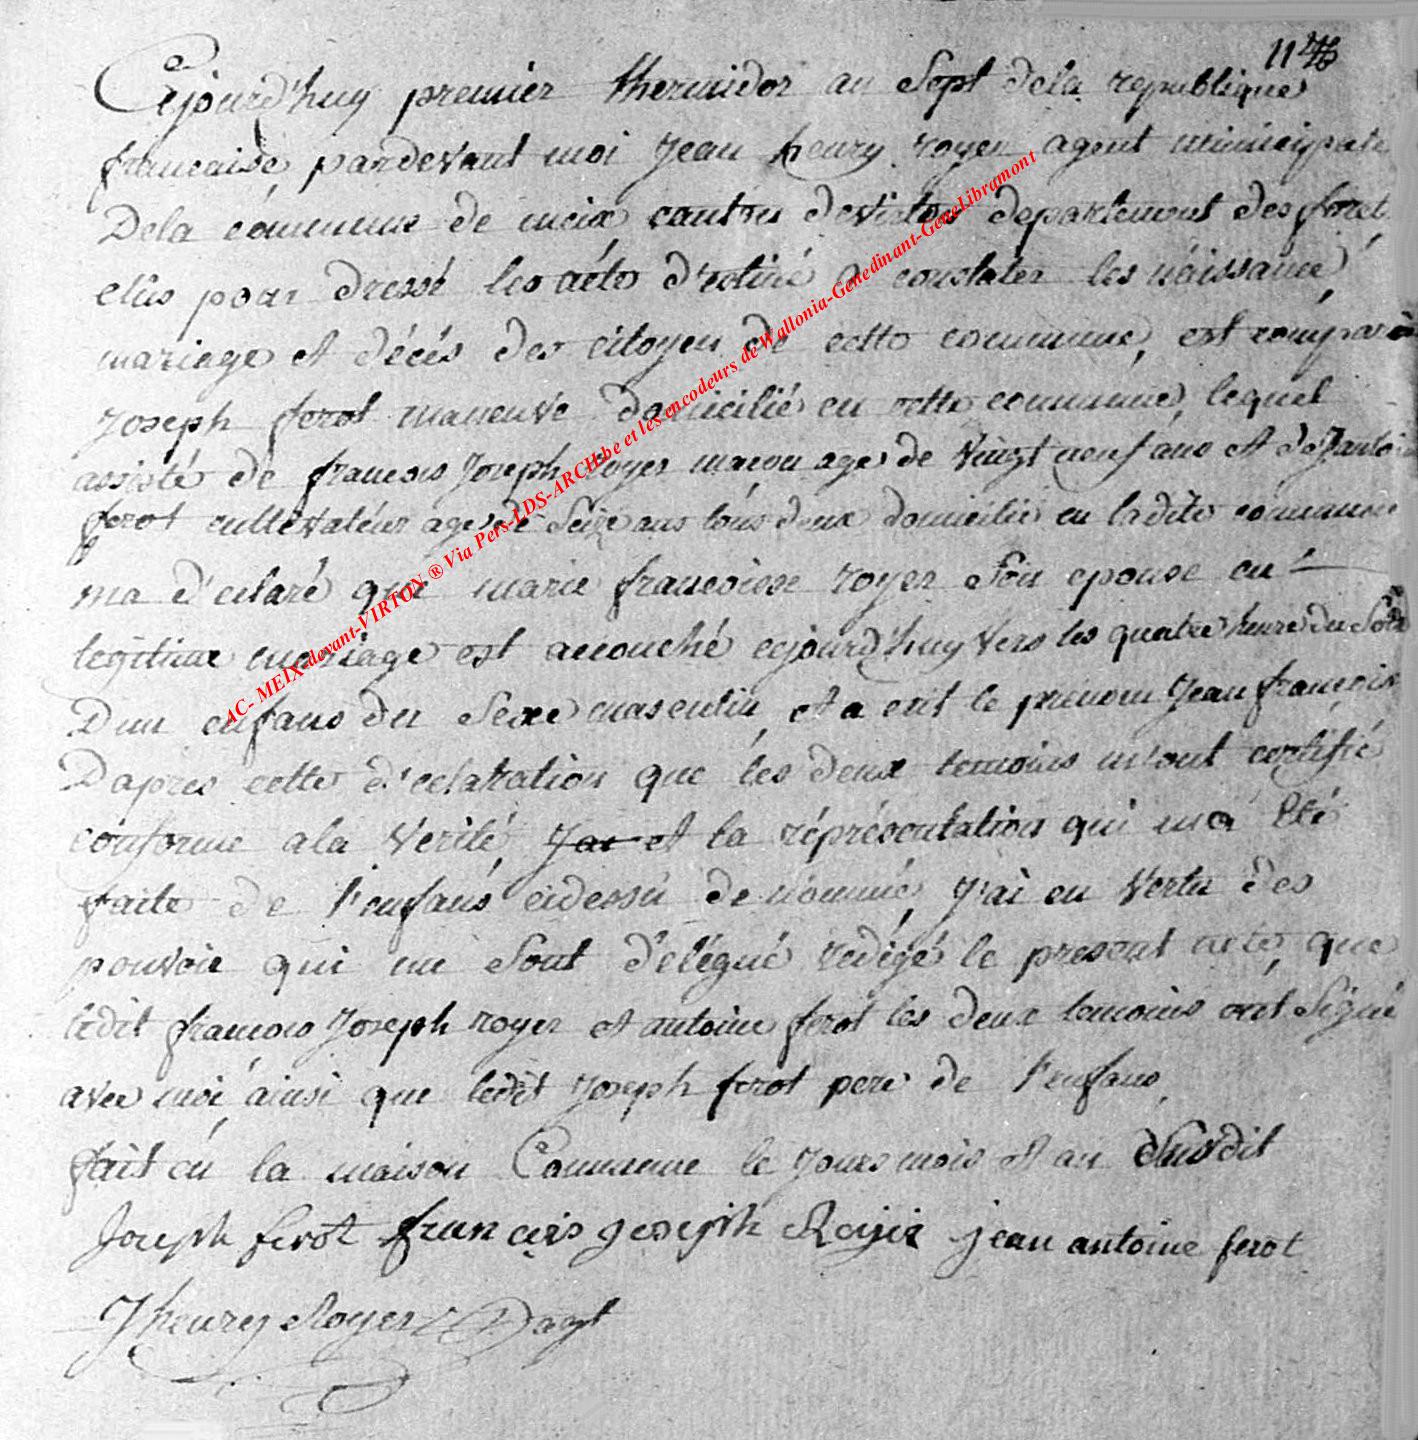 11
Cejourd'huy premier thermidor an Sept dela republique
francaise, pardevant moi Jean henry royer agent municipale
Dela commune de meix canton devirton departement des foret
elûs pour dressé les acte d'estiné a constater les náissance,
mariage et décés des citoyen de cette commune, est comparû
Joseph ferot maneuve domicilié en cette commune, lequel
assisté de francois Joseph royer macon age de vingt neuf ans et de J antoine
ferot cultevateur age de Seize ans tous deux domicilié en ladite commune
ma d'eclaré que marie francoisse royer Son epouse en
legitime mariage est accouché cejourd'huy vers les quatre heure du Soir
D'un enfans du Sexe masculin, et a  le prenom Jean francois
Dapres cette d'eclaration que les deux temoins m'ont certifié
conforme a la Verité, Jai et la répresentation qui ma été
faite de l'enfans cidessu denommé, J'ai en Vertu des
pouvoir qui me Sont d'elégué redigé le present acte, que
ledit francois Joseph royer et antoine ferot les deux temoins ont Signé
avec moi ainsi que ledit Joseph ferot pere de l'enfans,
fait en la maison Commune le Jours mois et an Susdit
Joseph ferot francois joseph Roijer jean antoine ferot
J henry Royer agt
AC- MEIX-devant-VIRTON ® Via Pers-LDS-ARCH.be et les encodeurs de Wallonia-Genedinant-GeneLibramont